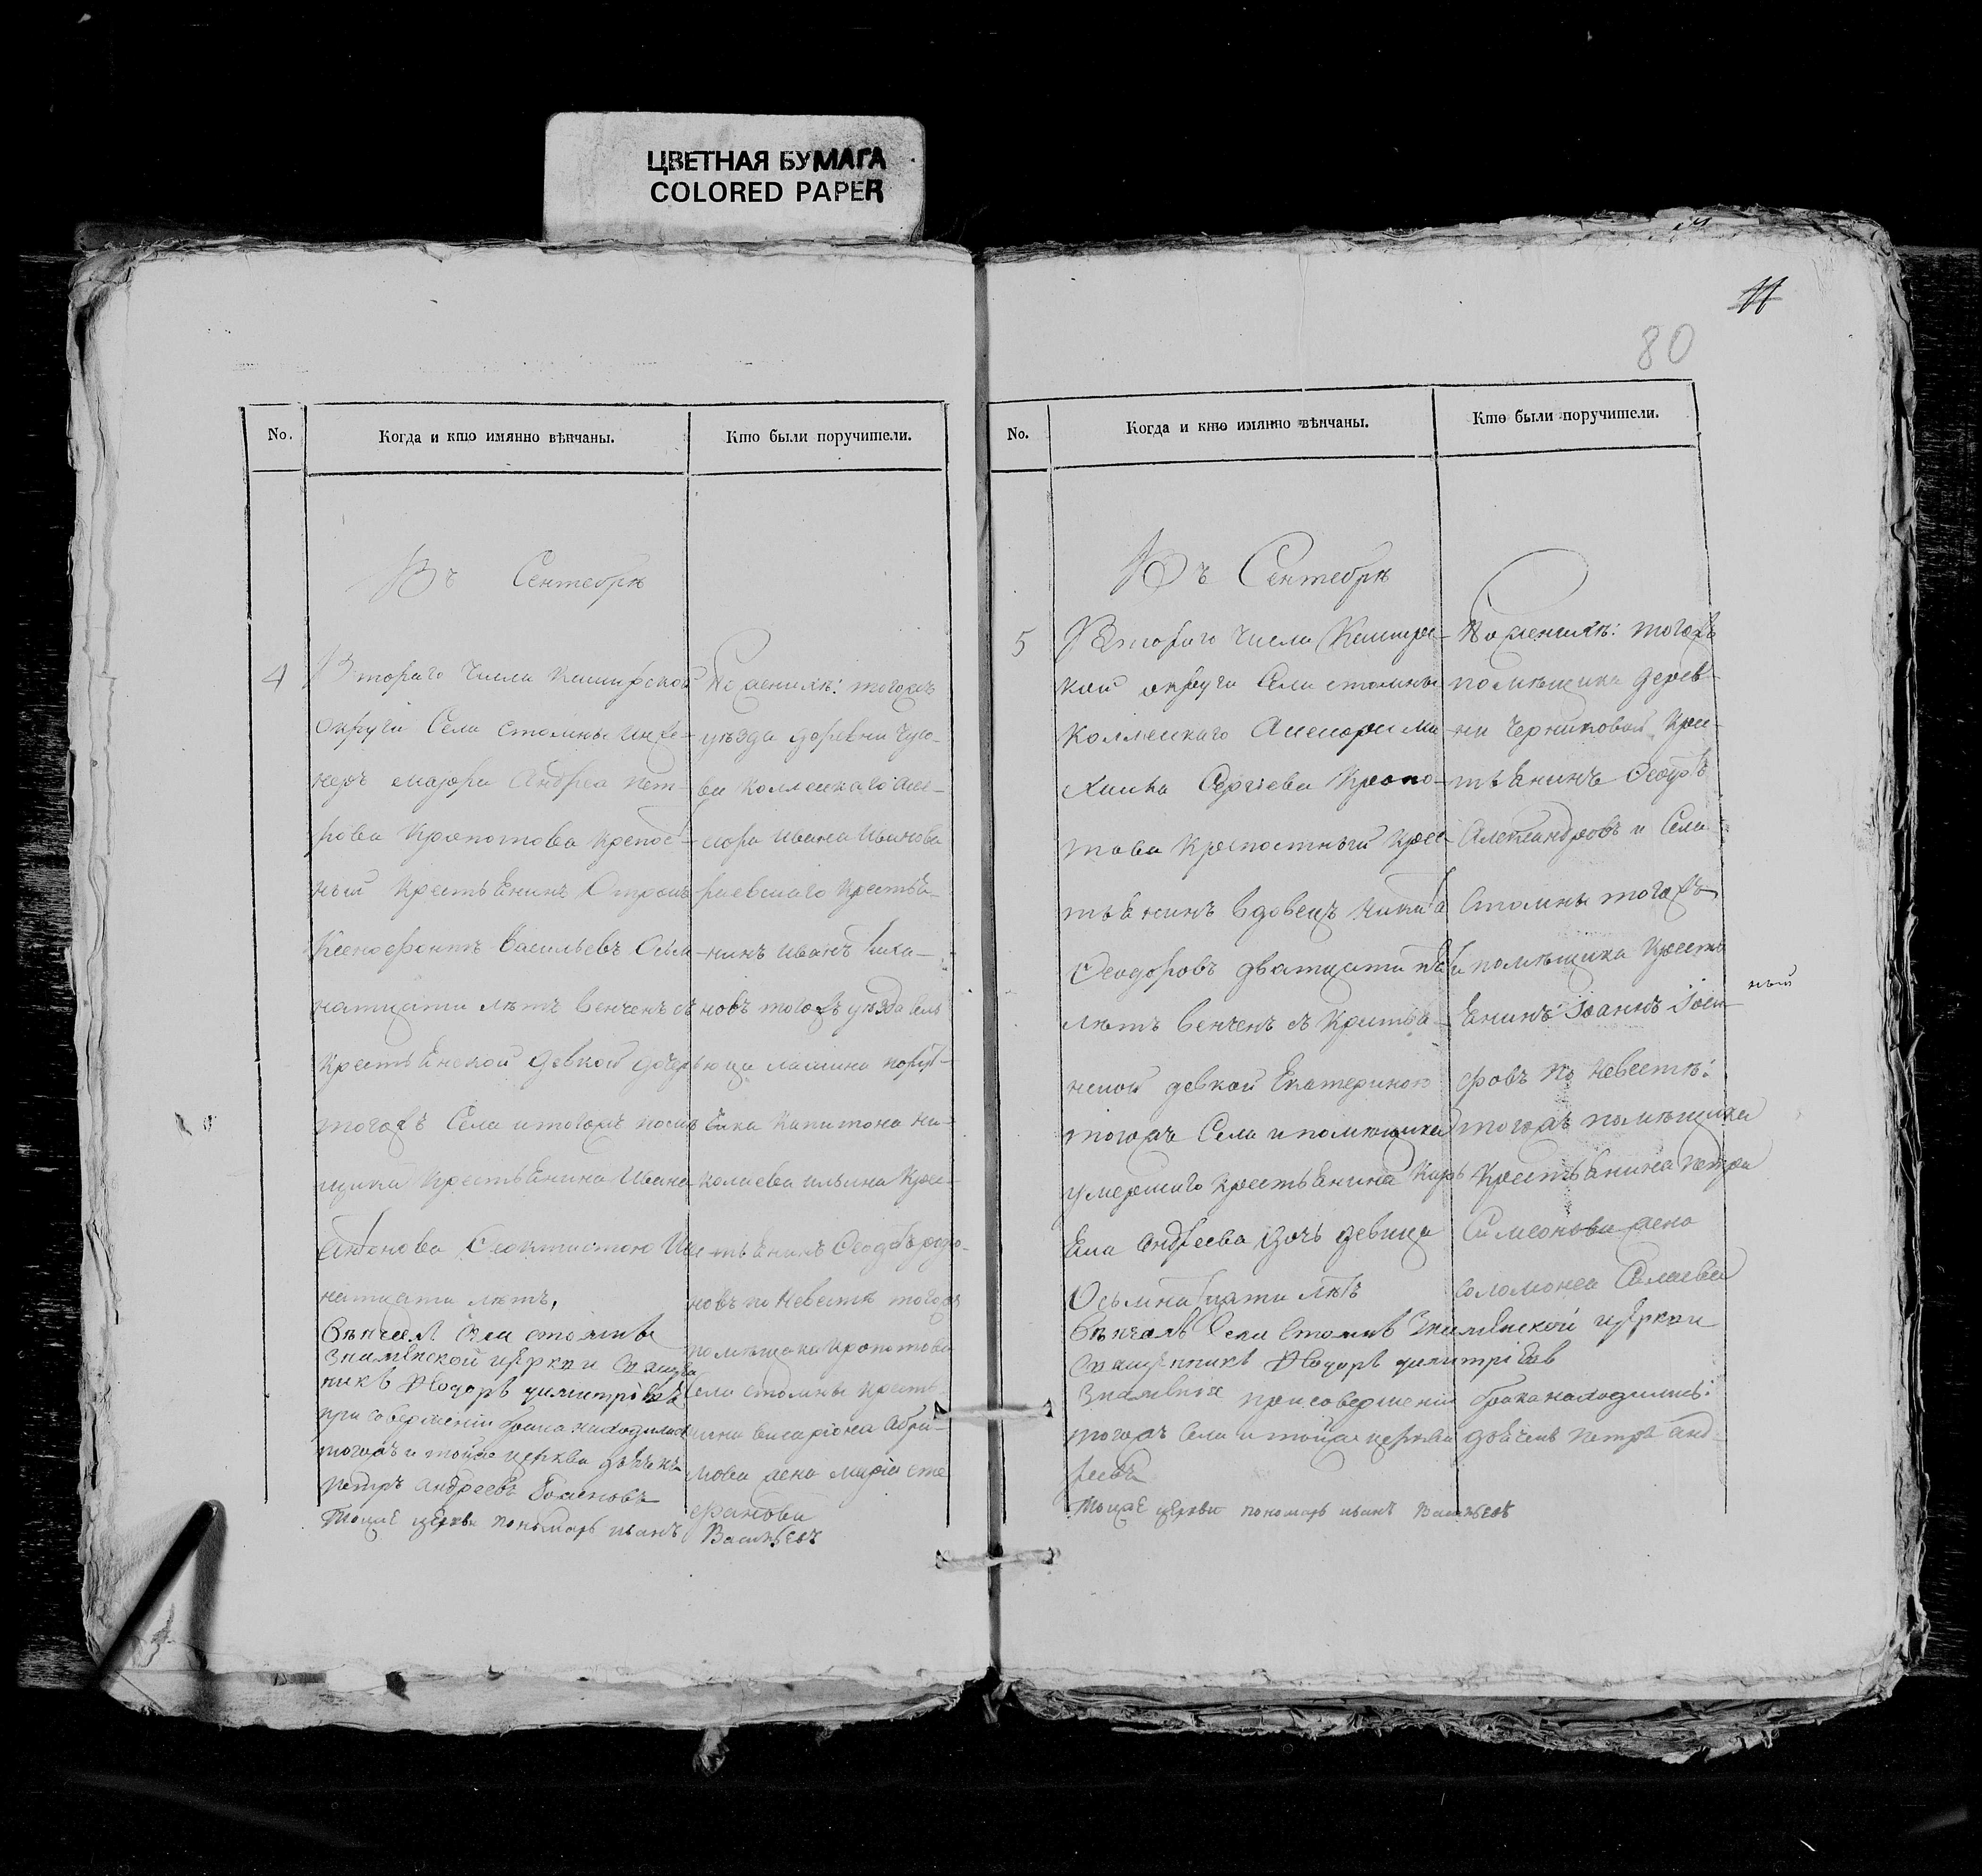 ЦВЕТНАЯ БУМАГА
COLORED PAPER
No.
Когда и кто имянно вѣнчаны.
Кто были поручители.
Въ Сентебрѣ
4
Втораго числа Каширской
Округи Села Стомны Инже-
неръ маіора Андрея Пет-
рова Кропотова крепос-
ный крестьЕнинъ Отрокъ
Ксенофонтъ Васильевъ Осьм-
натцати лѣтъ венченъ съ
крестьЕнской девкой дочерью
тогожъ Села и тогожъ помѣ-
щика КрестьЕнина Ивана
Антонова Феоктистою
натцати лѣтъ,
Вѣнчалъ Села Стомнъ
ЗнамЕнской цЕркви Свяще
никъ Ѳедоръ димитріЕвъ
при совершеніи брака находились
тогожъ и тойже церкви дьячекъ
Петръ Андреевъ
тойжЕ цЕркви пономарь иванъ
По женихѣ: тогожъ
уѣзда деревни
ва Коллежкаго Асе-
сора Ивана Иванова
раевскаго Крестья-
нинъ Иванъ
новъ тогожъ уѣзда сель
ца
чика Капитона Ни-
колаева Ильина Крес-
тьЕнинъ Феодоръ
новъ по Невестѣ тогожъ
помѣщика Кропотова
Села Стомны Кресть
нина Висаріона Абра-
мова жена марія Сте
фанова
ВасильЕвъ
11
80
No.
Когда и кто имянно вѣнчаны.
Кто были поручители.
Въ Сентебрѣ
5
Втораго числа Каширс-
кой округи Села Стомны
Коллежкаго Асесора Ми
хаила Сергіева Кропо-
това Крепостный Крес-
тьЕнинъ вдовецъ Никита
Феодоровъ дватцати
лѣтъ венченъ съ Крестья-
нской девкой Екатериною
тогожъ Села и помѣщика
умершаго КрестьЕнина
Андреева дочь девица
Осьмнатцати лѣтъ
Вѣнчалъ Села Стомнъ ЗнамЕнской цЕркви
СвящЕнникъ Ѳедоръ димитріЕвъ
при совершеніи брака находились:
тогожъ Села и тойже церкви дьячекъ Петръ Анд-
реевъ
тойжЕ цЕркви пономарь иванъ ВасильЕвъ
По женихѣ: тогожъ
помѣщика дерев-
ни Черниковой Крес-
тьЕнинъ Феодоръ
Александровъ и Села
Стомны тогожъ
помѣщика Кресть
Енинъ Іоаннъ Іоси-
фовъ по Невестѣ:
тогожъ помѣщика
КрестьЕнина Петра
Симеонова жена
Соломонея
ный